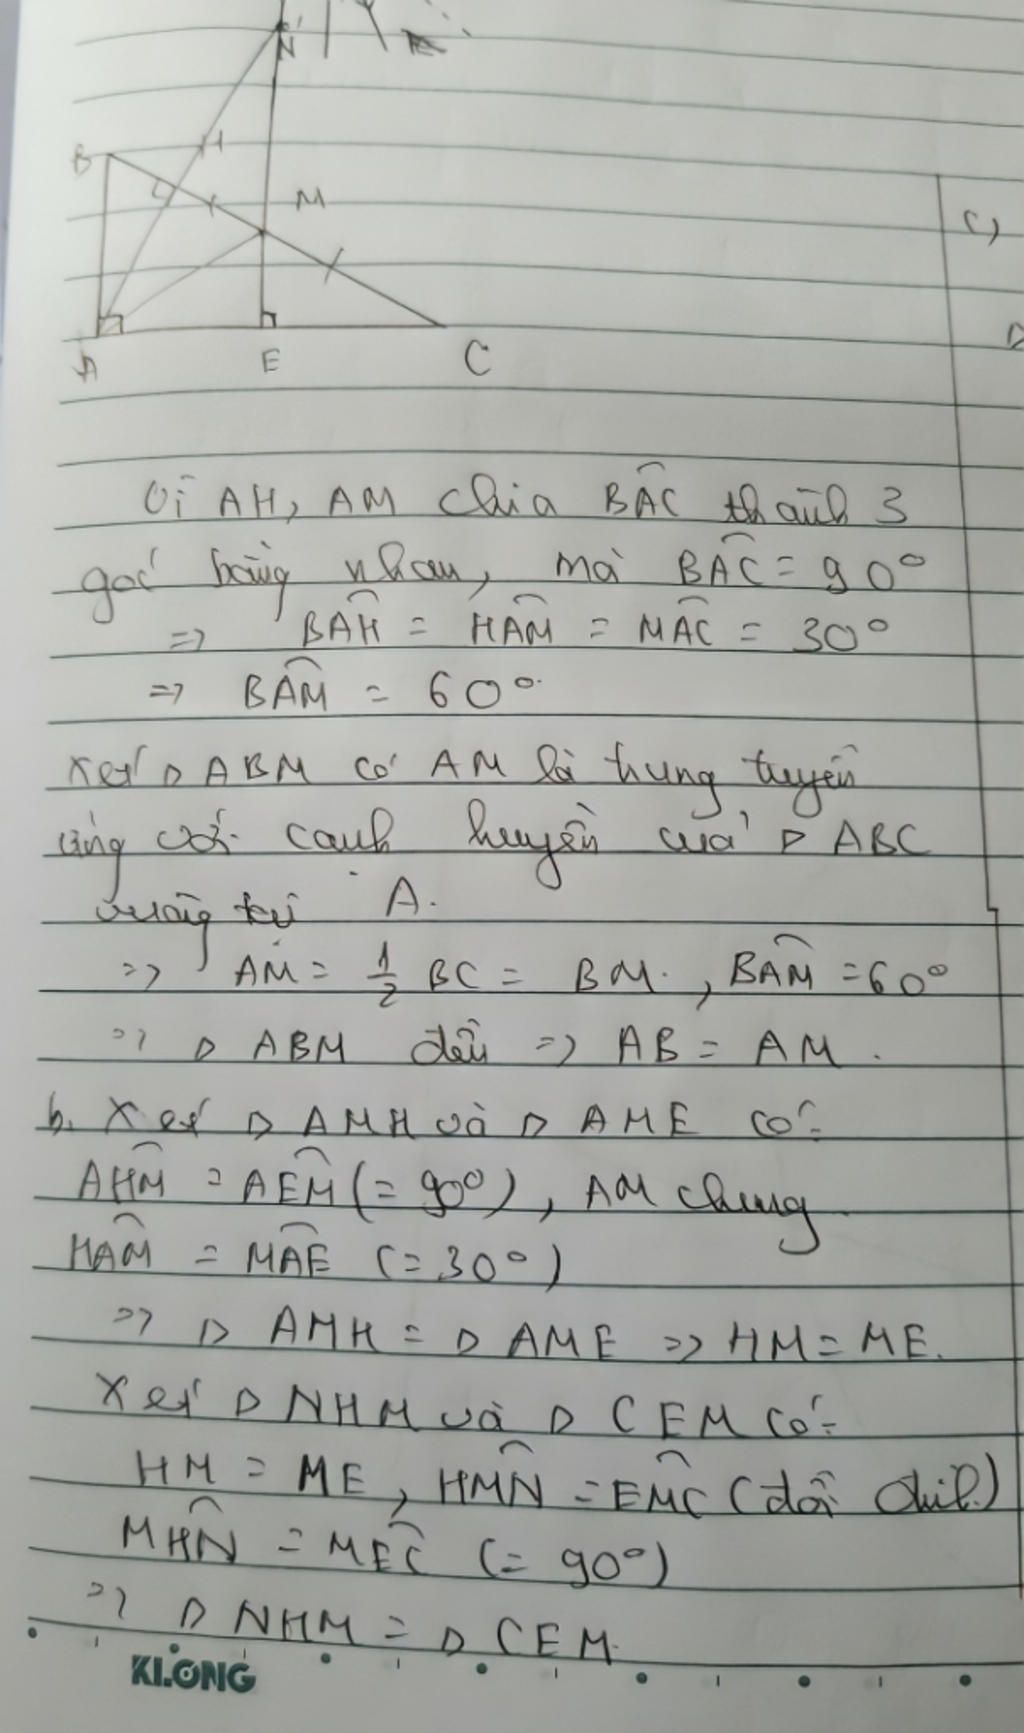 N
B
H
M
C)
A
E
C
Vì AH, AM chia BÂC thành 3
góc bằng nhau, mà BÂC = 90°
=> BÂH = HÂM = MÂC = 30°
=> BÂM = 60°
Xét Δ ABM có AM là trung tuyến
ứng với cạnh huyền của Δ ABC
vuông tại A.
=> AM = 1/2 BC = BM., BÂM = 60°
=> Δ ABM đều => AB = AM.
b. Xét Δ AMH và Δ AME có:
AĤM = AÊM (= 90°), AM chung
HÂM = MÂE (= 30°)
=> Δ AMH = Δ AME => HM = ME.
Xét Δ NHM và Δ CEM có:
HM = ME, HM̂N = EM̂C (đối đỉnh)
MĤN = MÊC (= 90°)
=> Δ NHM = Δ CEM.
KLONG